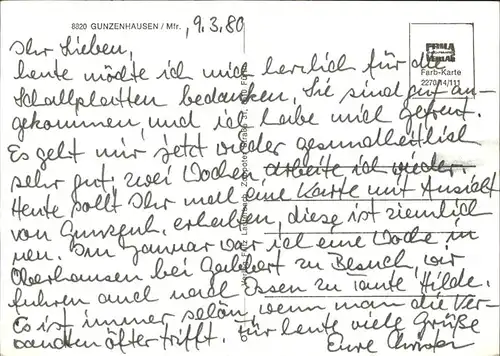 8820 GUNZENHAUSEN / Mfr.
9.3.80
PRINA
VERLAG
Farb-Karte
2270/14/111
Ihr Lieben,
heute möchte ich mich herzlich für die
Schallplatten bedanken. Sie sind gut an-
gekommen, und ich habe mich gefreut.
Es geht mir jetzt wieder gesundheitlich
sehr gut, zwei Wochen arbeite ich wieder.
Heute sollt Ihr mal eine Karte mit Ansicht
von Gunzenh. erhalten, diese ist ziemlich
neu. Im Januar war ich eine Woche in
Oberhausen bei zu Besuch, wir
fuhren auch nach Essen zu Tante Hilde.
Es ist immer schön, wenn man die Ver-
wandten öfter trifft. Für heute viele Grüße
Eure